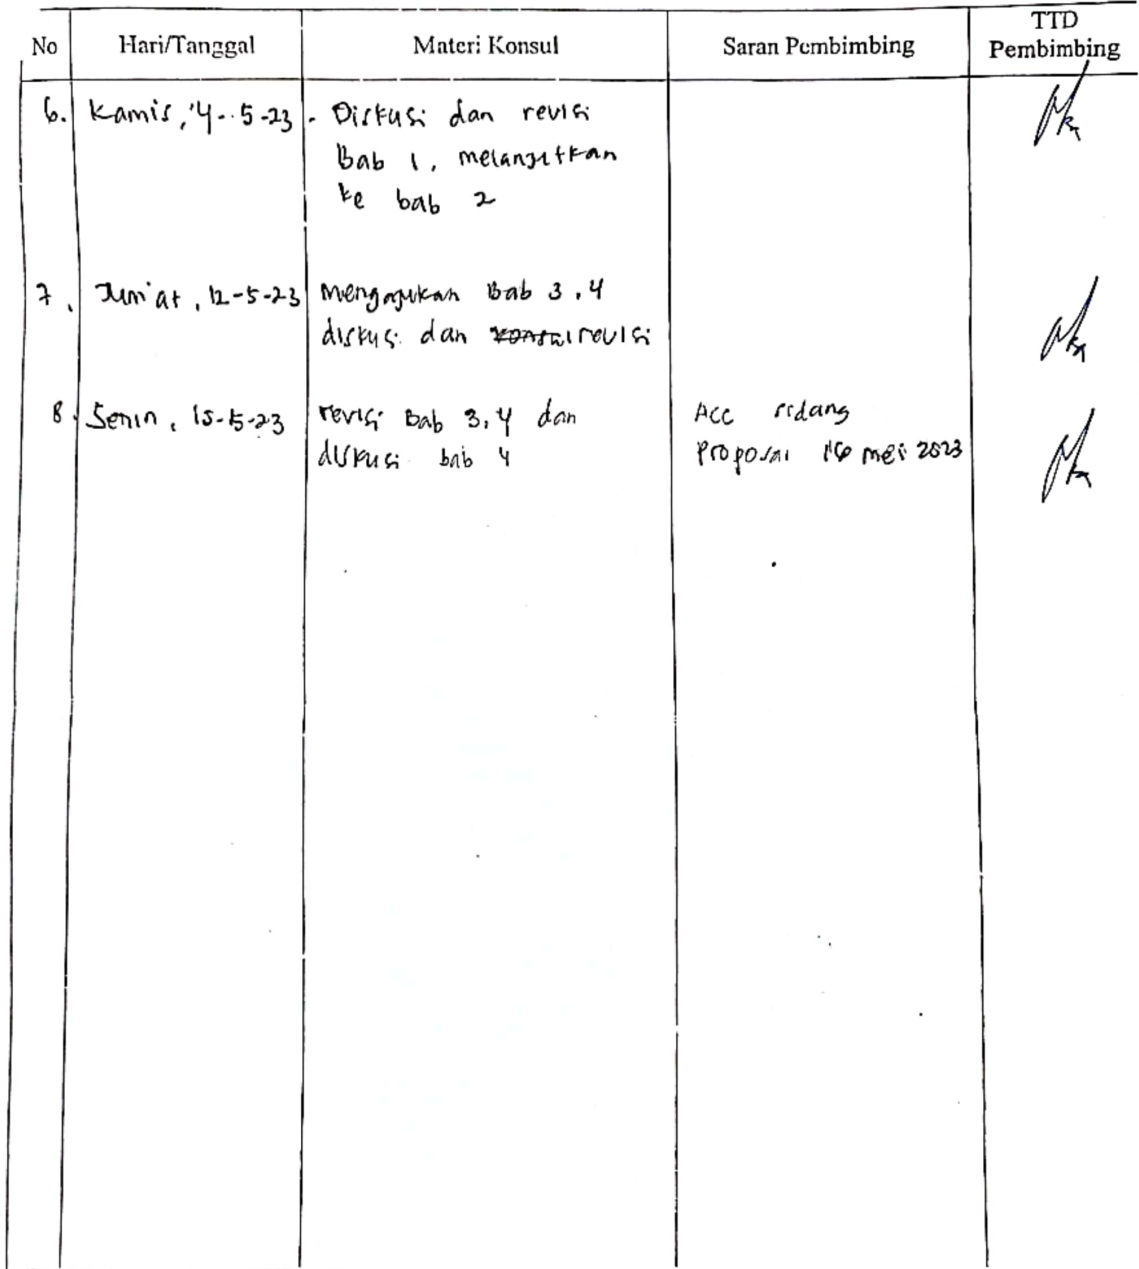 No Hari/Tanggal Materi Konsul Saran Pembimbing TTD Pembimbing
6. Kamis, 4-5-23 - Diskusi dan revisi
Bab 1, melanjutkan
ke bab 2
7. Jum'at, 12-5-23 mengajukan Bab 3, 4
diskusi dan revisi
8. Senin, 15-5-23 revisi Bab 3, 4 dan Acc sidang
diskusi bab 4 Proposal 16 mei 2023